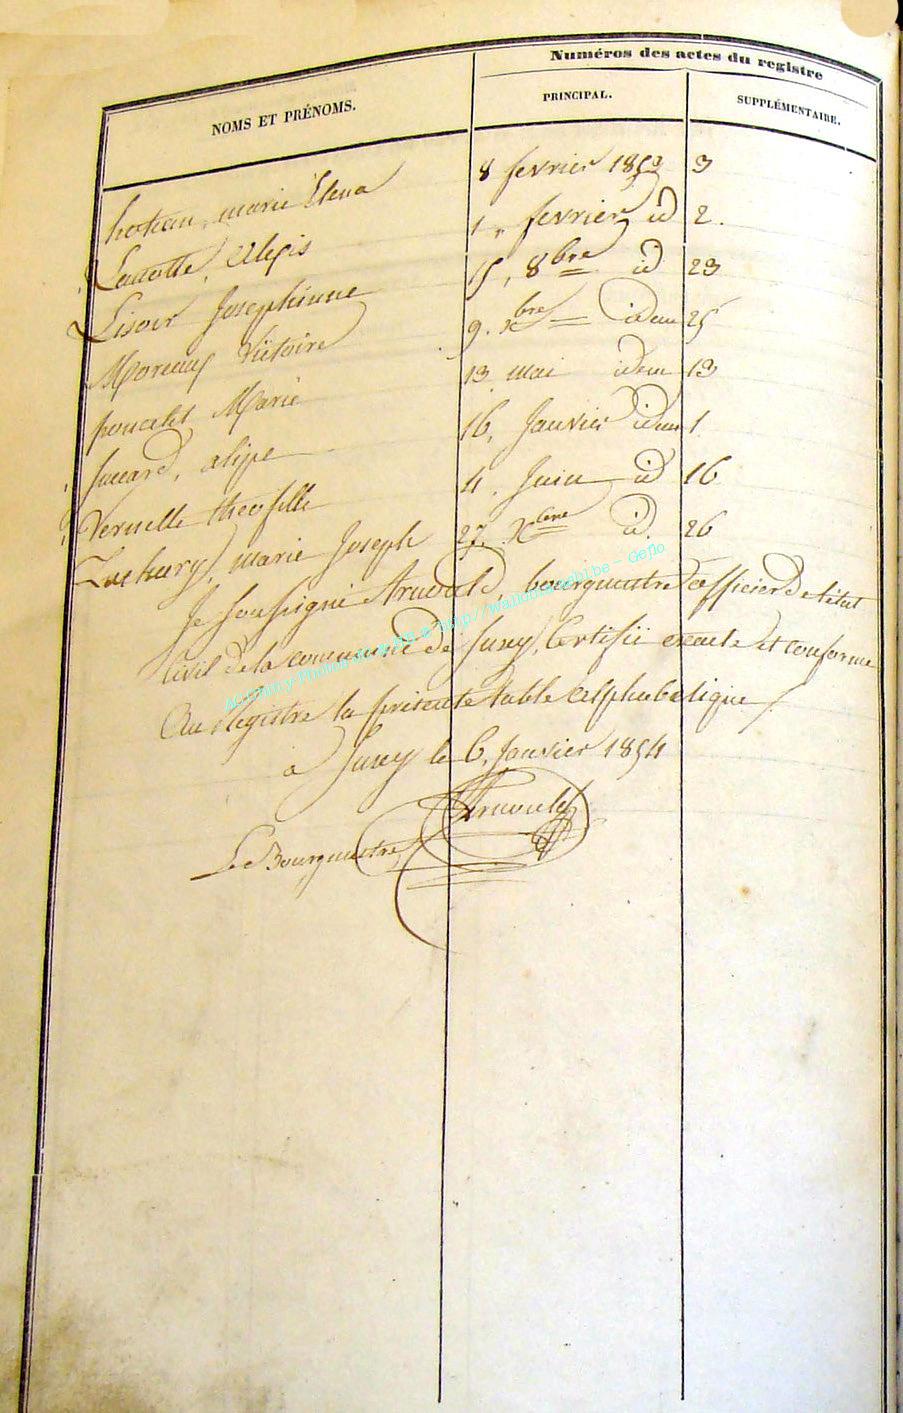 Numéros des actes du registre
NOMS ET PRÉNOMS. PRINCIPAL. SUPPLÉMENTAIRE.
marie Elena 8 fevrier 1853 3
Lacotte, Alexis 1er fevrier id 2.
Lisoir Josephinne 15, 8bre id 23
Moreaux Victoire 9. Xbre idem 25
poncelet Marie 13 mai idem 13
Sucard, alipe 16, Janvier idem 1
Vernelle theofille 4. Juin id 16
Zachary, marie Joseph 27 Xbre id. 26
Je soussigné Arnould, bourgmestre officier de l'état
Civil de la commune de Suxy, Certifie exacte et conforme
Au Registre la présente table alphabetique
à Suxy le 6, Janvier 1854
Le Bourgmestre Arnould
http://wallobonsbi.be - Geflo